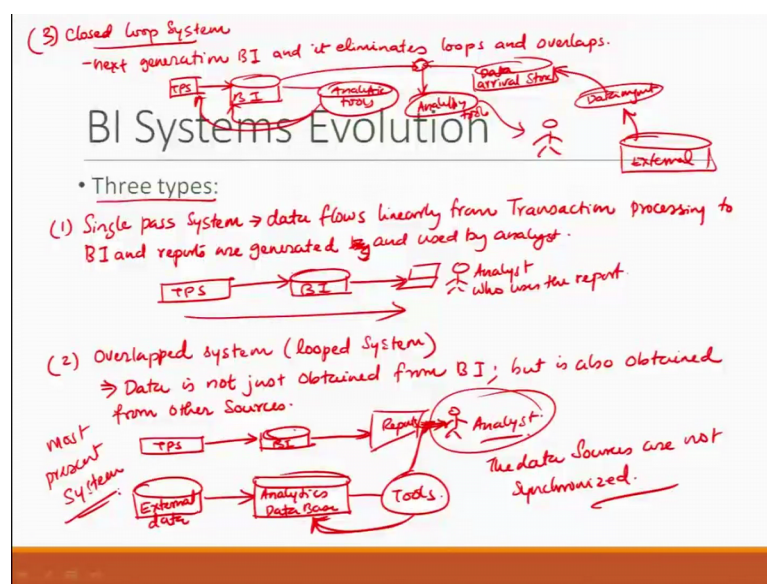 (3) Closed loop System
-next generation BI and it eliminates loops and overlaps.
TPS
BI
Analytic tools
Analytics tools
Data arrival Store
Data mgmt
External
BI Systems Evolution
• Three types:
(1) Single pass System → data flows linearly from Transaction processing to
BI and reports are generated and used by analyst.
TPS
BI
Analyst
who uses the report.
(2) Overlapped system (looped System)
⇒ Data is not just obtained from BI; but is also obtained
from other Sources.
most
present
System
TPS
BI
Reports
Analyst.
The data Sources are not
Synchronized.
External
data
Analytics
Data Base
Tools.